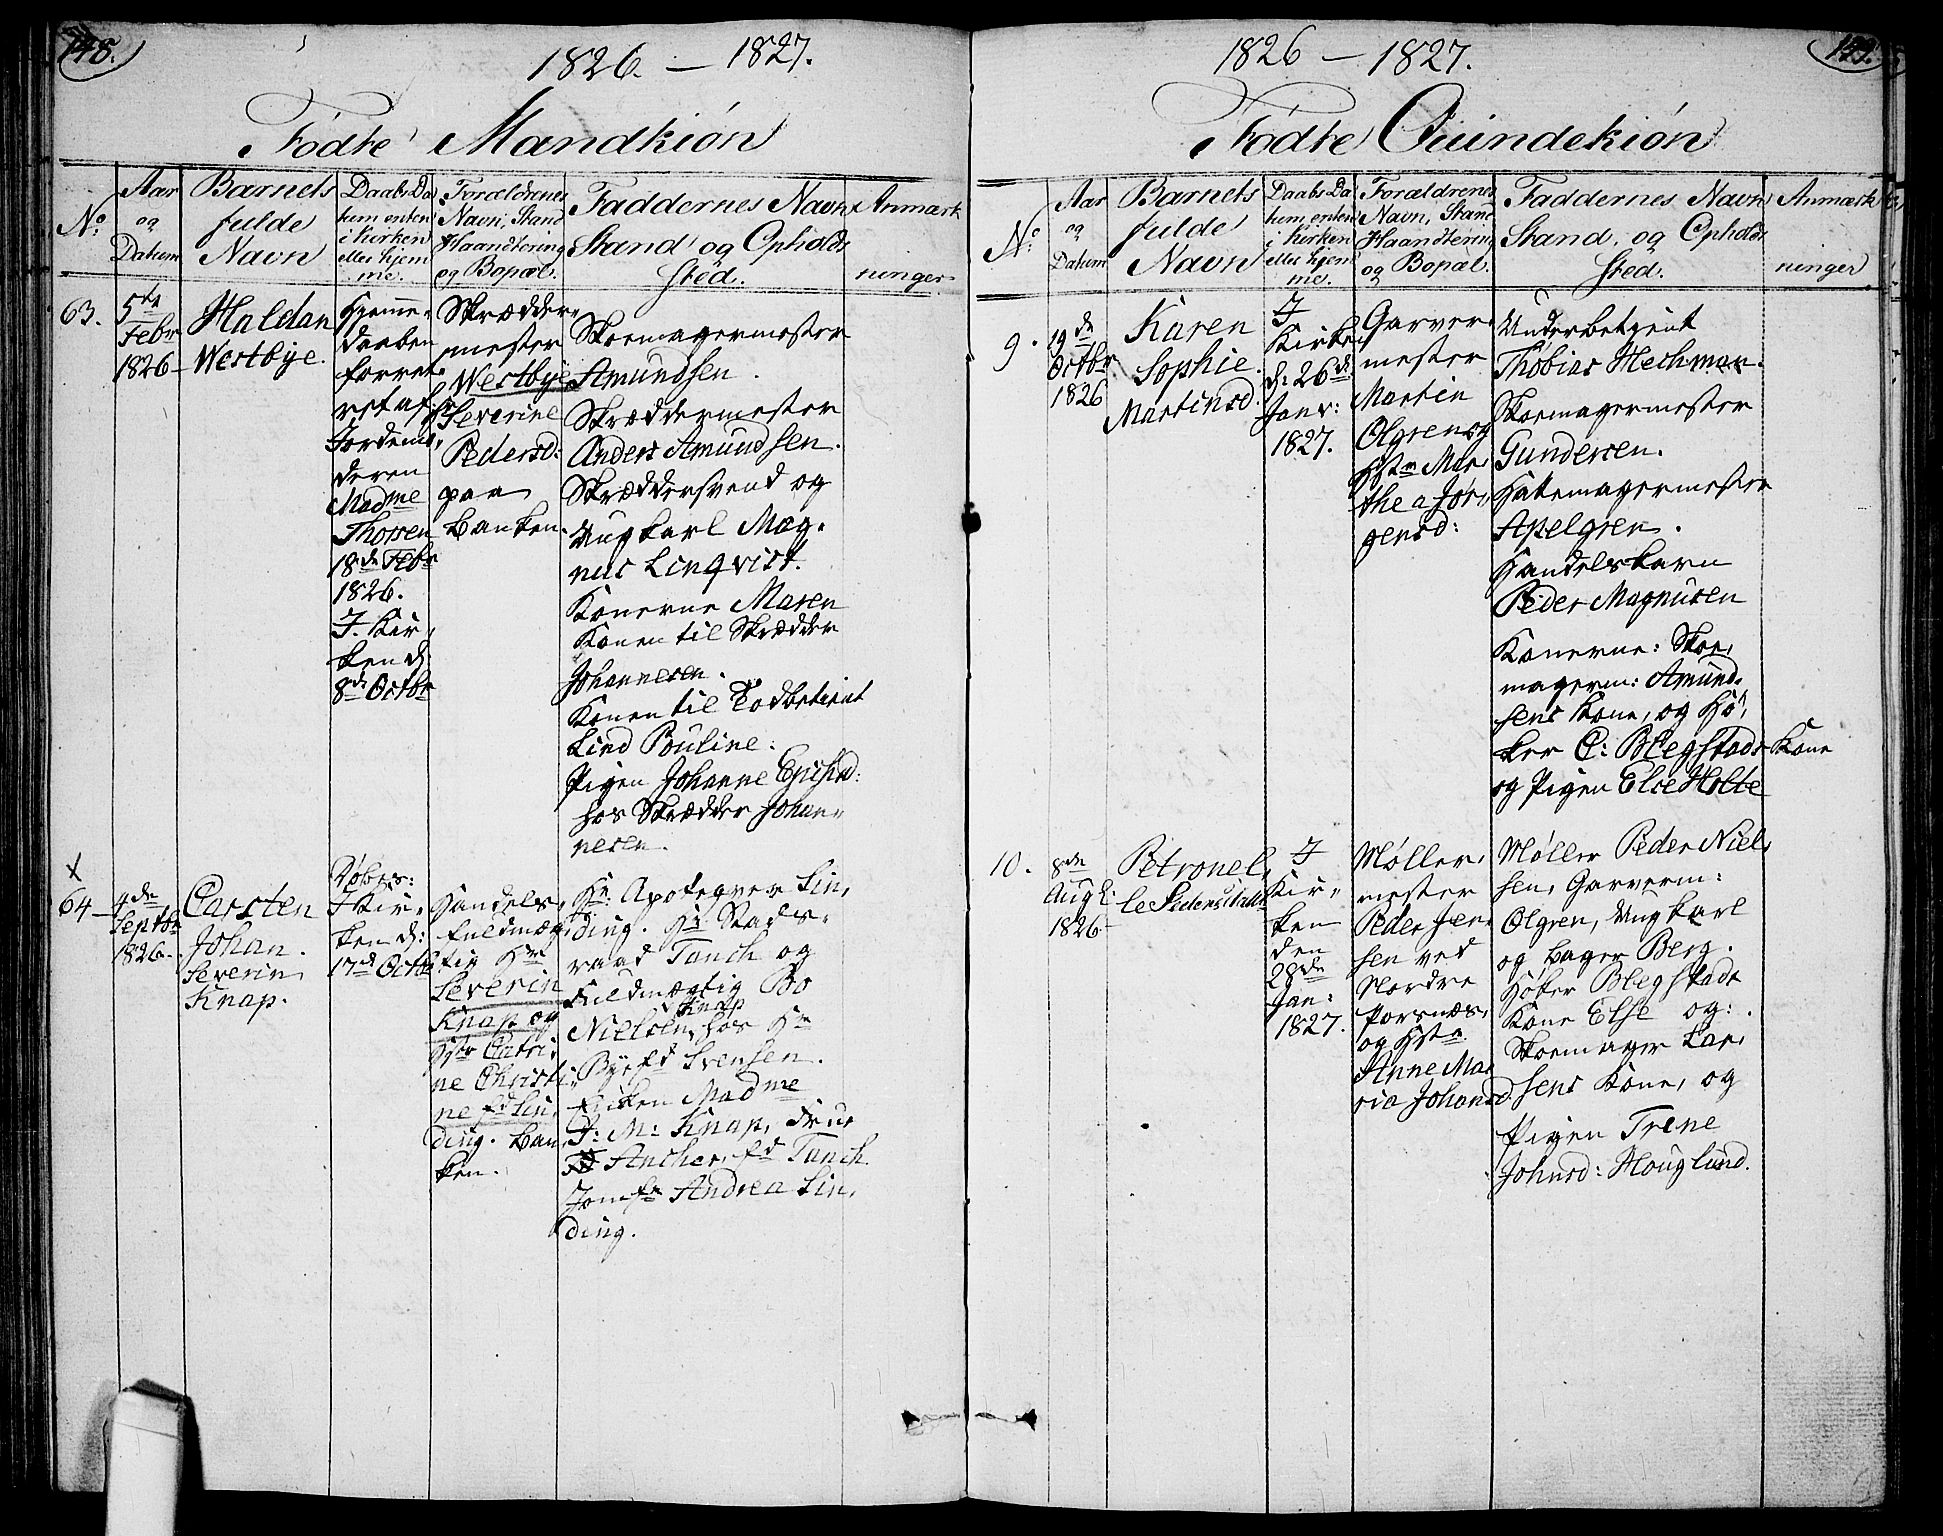 148.
1826. — 1827.
Fødte Mandkiøn
No.
Aar
og
Datum
Barnets
fulde
Navn
Daabs Da
tum enten
i Kirken
eller hjem
me.
Forældrenes
Navn, Stand
Haandtering
og Bopæl.
Faddernes Navn
Stand og Opholds
Sted.
Anmærk
ninger
63.
5te
Febr
1826
Haldan
Westbye.
Hjemme-
daaben
forret-
tet af
Jordemo-
deren
Madme
Thorsen
18de Febr
1826.
I. Kir-
ken d:
8de Octbr
Skrædder-
mester
Westbye
Severine
Pedersd:
paa
Banken.
Skoemagermester
Amundsen.
Skræddermester
Anders Amundsen.
Skræddersvend og
Ungkarl Mag-
nus Linqvist.
Konerne Maren
Konen til Skrædder
Johannesen.
Konen til Todbetient
Lind Pouline.
Pigen Johanne
hos Skrædder Johan-
nesen.
64
4de
Septbr
1826.
Carsten
Johan.
Severin
Knap.
Døbt
I Kir-
ken d:
17de Octbr
Handels-
fuldmæg-
tig Hr
Severin
Knap og
Hstr Catri-
ne Christi-
ne fd Lin-
ding. Ban-
ken.
Hr. Apoteqver Lin-
ding. Hr Stads-
raad Tanch og
Fuldmægtig Bo
Nielsen Knap hos Hr
Byefd Svensen.
Enken Madme
J: M: Knap, Frue
Ancher, fd Tanch.
Jomfr Andrea Lin-
ding.
149.
1826 — 1827.
Fødte Quindekiøn
No.
Aar
og
Datum
Barnets
fulde
Navn
Daabs Da
tum, enten
i Kirken
eller hjem
me.
Forældrenes
Navn, Stand
Haandtering
og Bopæl.
Faddernes Navn
Stand, og Opholds
Sted.
Anmærk
ninger
9.
19de
Octbr
1826
Karen
Sophie.
Martinsd.
I
Kirken
d: 26de
Janr:
1827.
Garver-
mester
Martin
Olgren og
Hstr Mar-
thea Jør-
gensd:
Underbetient
Thobias Hechman.
Skoemagermester
Gundersen.
Hattemagermester
Apelgren.
Handelskarn
Peder Magnusen
Konerne: Skoe-
magerm: Amund-
sens Kone, og Hø-
ker C: Blegstads Kone
og Pigen Else Holte
10.
8de
Augt.
1826.
Petronel-
le
I
Kir-
ken
den
28de
Jan:
1827.
Møller-
mester
Peder Jen-
sen ved
Nordre
Porsnæs,
og Hstr
Anne Ma-
ria Johansd
Møller Peder Niel-
sen, Garverm:
Olgren, Ungkarl
og Bager Berg.
Høker Blegstads
Kone Else og:
Skoemager Lar-
sens Kone, og
Pigen Trene
Johnsd: Houglund.